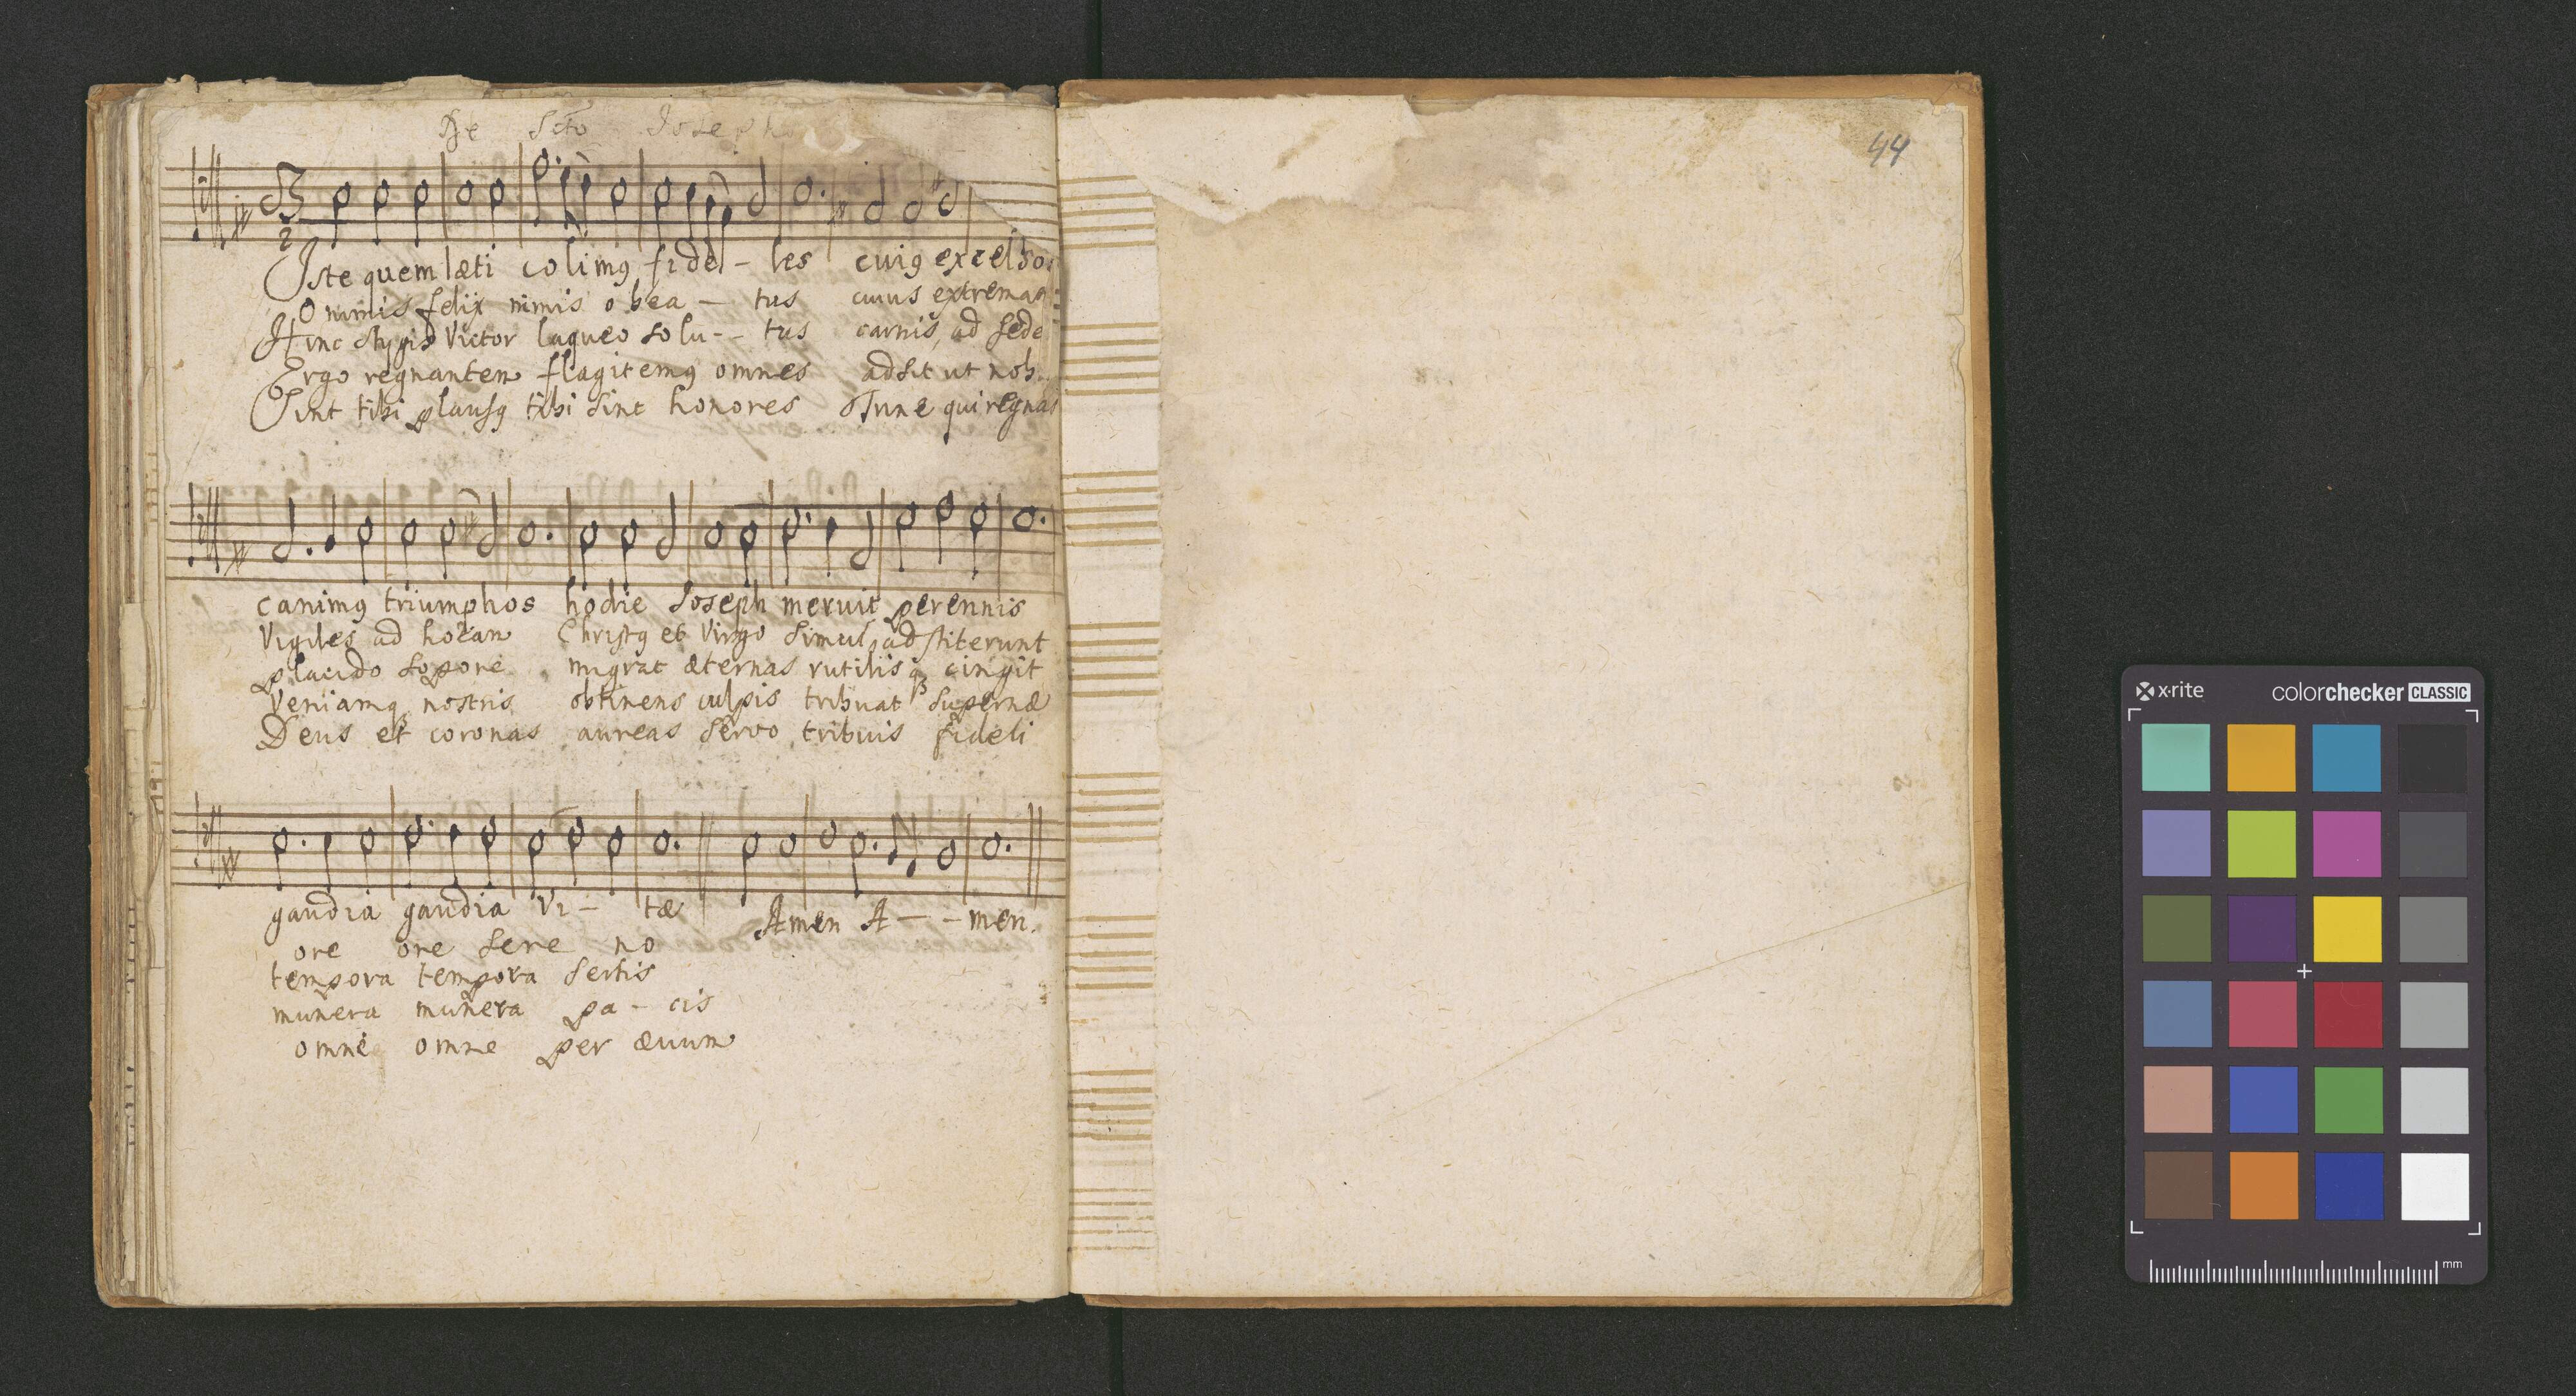 De Scto Joseph
3
2
Iste quem læti colimꝰ fidel - les cuiꝰ excelsos
O nimis felix nimis o bea - tus cuius extrema
Hinc stygis Victor laqueo solu - - tus carnis, ad sede
Ergo regnantem flagitemꝰ omnes adsit ut nob
Sint tibi plausꝰ tibi sint honores Trine qui regnas
canimꝰ triumphos hodie Joseph meruit perennis
Vigiles ad horam Christꝰ et Virgo simul adstiterunt
placido sopore migrat æternas rutilisqꝫ cingit
Veniamqꝫ nostris obtinens culpis tribuat supernæ
Deus et coronas aureas servo tribuis fideli
gaudia gaudia Vi - tæ Amen A - - men.
ore ore sere no
tempora tempora sertis
munera munera pa - cis
omne omne per ævum
44
x·rite colorchecker CLASSIC
mm